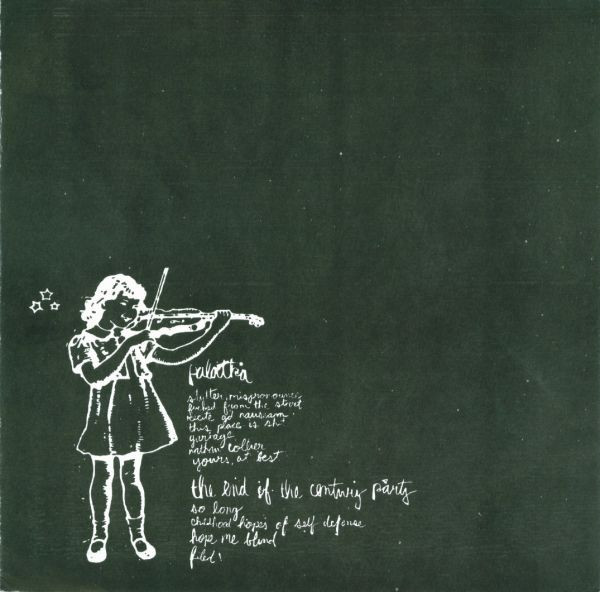 palatka
stutter, mispronounce
fucked from the start
recite ad nauseam
this place is shit
garbage
nathan collier
yours, at best
the end of the century party
so long
childhood hopes of self defense
hope me blind
filed!